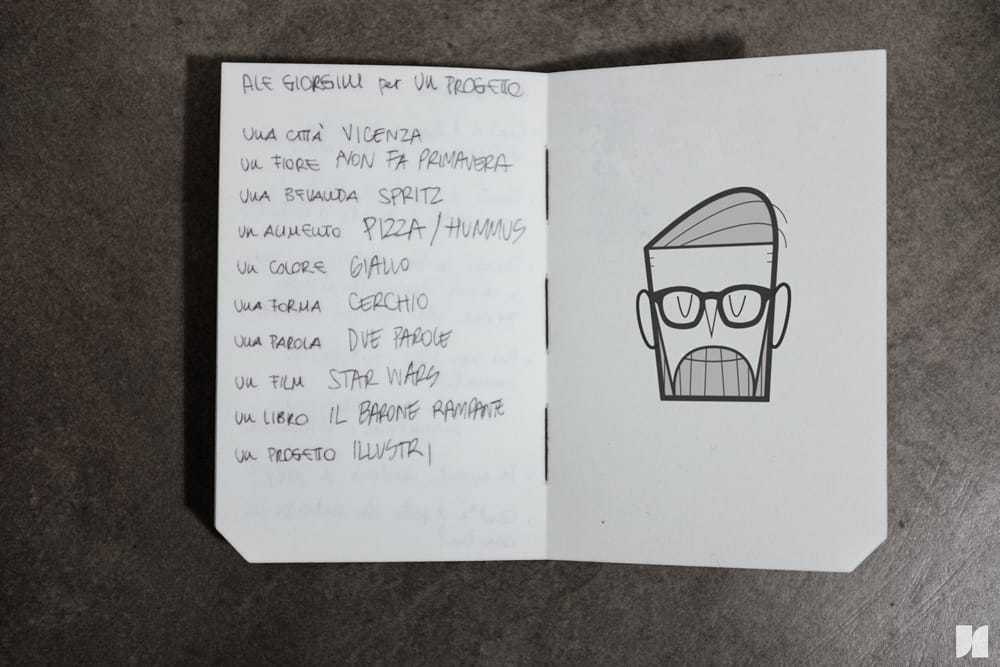 ALE GIORGINI per UN PROGETTO
UNA CITTÀ VICENZA
UN FIORE NON FA PRIMAVERA
UNA BEVANDA SPRITZ
UN ALIMENTO PIZZA / HUMMUS
UN COLORE GIALLO
UNA FORMA CERCHIO
UNA PAROLA DUE PAROLE
UN FILM STAR WARS
UN LIBRO IL BARONE RAMPANTE
UN PROGETTO ILLUSTRI